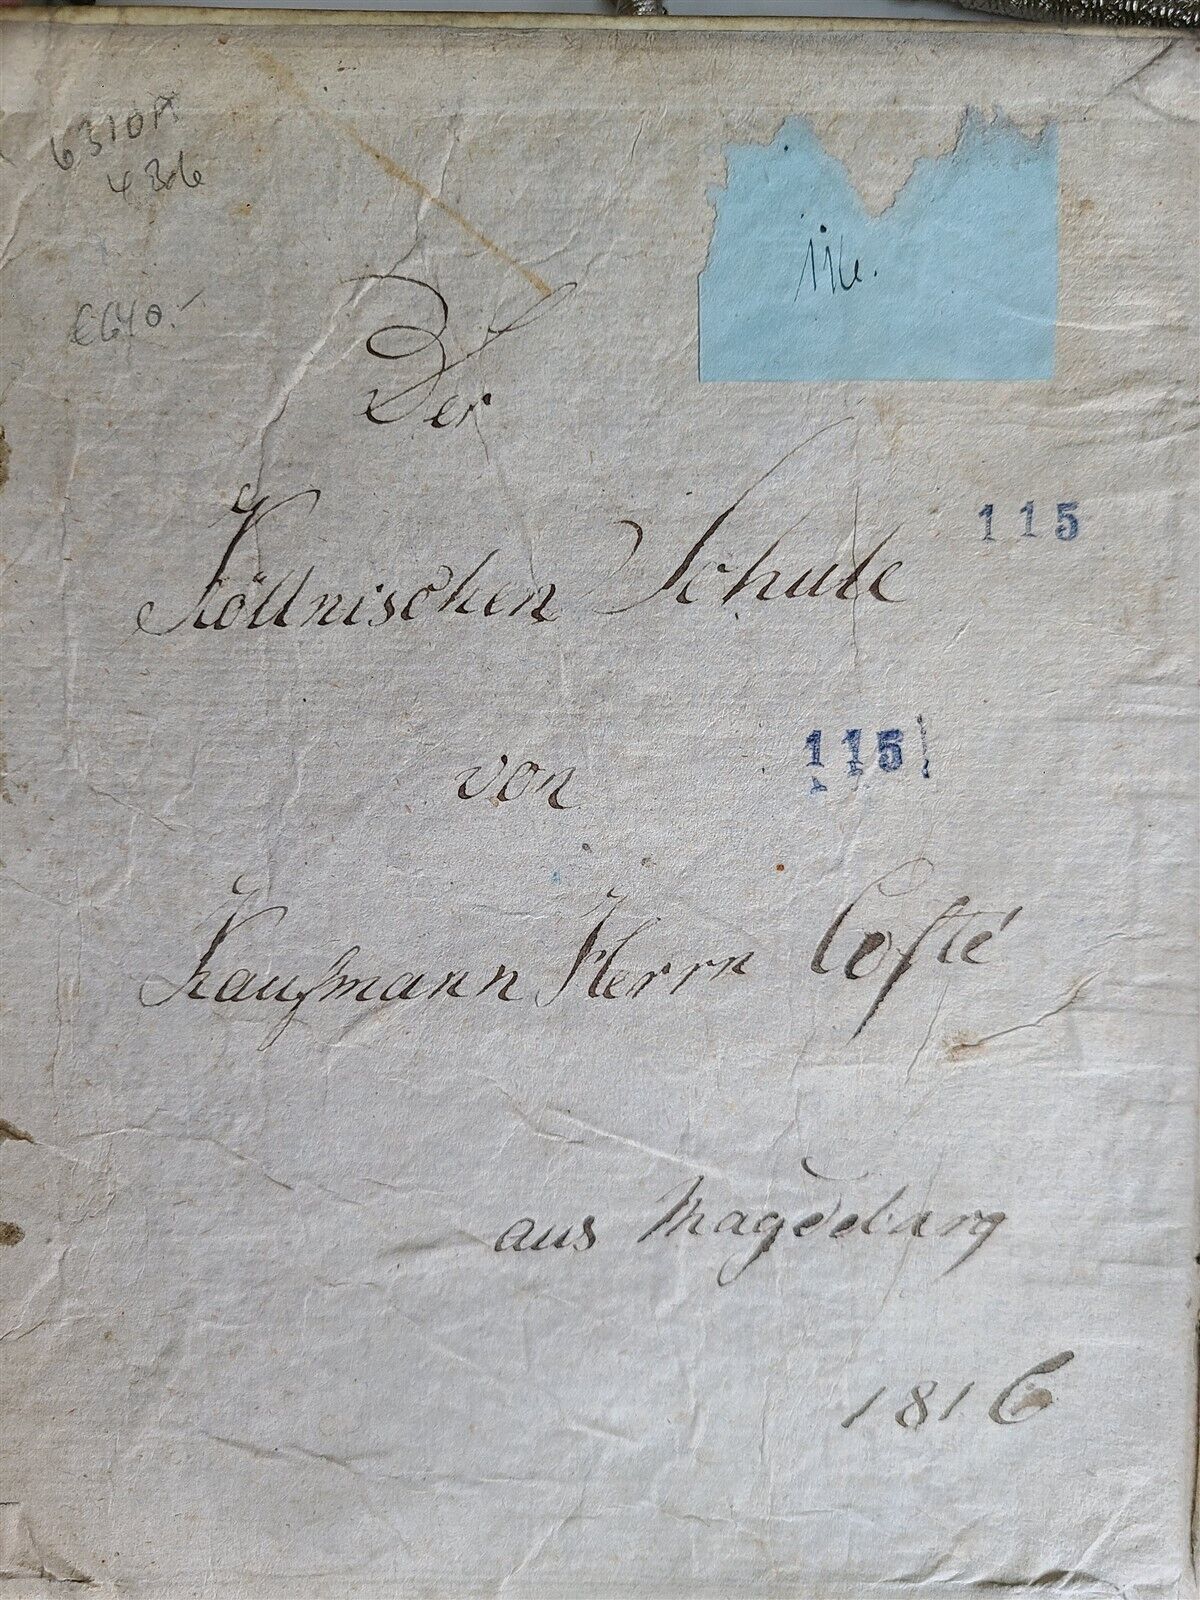 6310A
436
€640.-
Der
Köllnischen Schule
115
von
115
Kaufmann Herrn Cofté
aus Magdeburg
1816